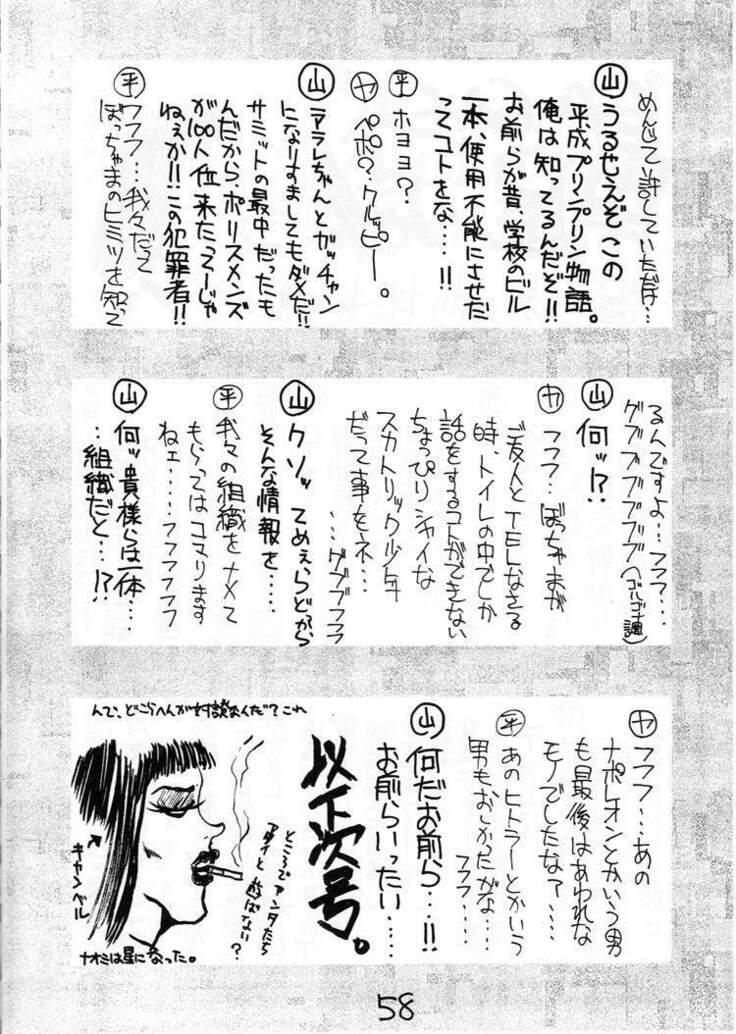 めんじて許していただけ…
山 うるせえぞこの
平成プリンプリン物語。
俺は知ってるんだぞ!!
お前らが昔、学校のビル
一本、使用不能にさせだ
ってコトをな…!!
平 ホヨヨ?
ヤ ペポ?クルピー。
山 アラレちゃんとガッチャン
になりすましてもダメだ!!
サミットの最中だったも
んだから、ポリスメンズ
が100人位来たろーじゃ
ねぇか!!この犯罪者!!
平 フフフ…我々だって
ぼっちゃまのヒミツを知って
るんですよ…フフフ…
グブブブブブブ(ゴルゴ13調)
山 何ッ!?
ヤ フフフ…ぼっちゃまが
ご友人とTELなさる
時、トイレの中でしか
話をするコトができない
ちょっぴりシャイな
スカトリック少年
だって事をネ…
…グブブフフフ
山 クソッてめえらどから
そんな情報を……
平 我々の組織をナメて
もらってはコマります
ねェ……フフフフフ
山 何ッ貴様らは一体…
…組織だと…!?
ヤ フフフ…あの
ナポレオンとかいう男
も最後はあわれな
モノでしたなァ……
平 あのヒトラーとかいう
男もおしかったがな…
フフフ……
山 何だお前ら…!!
お前らいったい……
以下次号。
ところでアンタたち
アタイと遊ばない?
んで、どこらへんが対談なんだ?これ
キャンベル
ナオミは星になった。
58